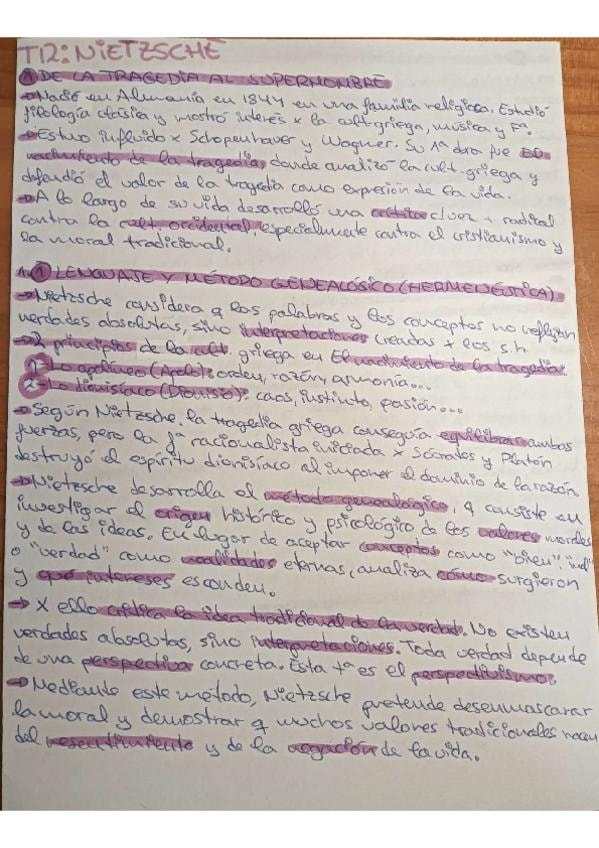 T12: NIETZSCHE
1 DE LA TRAGEDIA AL SUPERHOMBRE
→ Nació en Alemania en 1844 en una familia religiosa. Estudió
filología clásica y mostró interés x la cult. griega, música y Fª.
→ Estuvo influido x Schopenhauer y Wagner. Su 1ª obra fue El
nacimiento de la tragedia, donde analizó la cult. griega y
defendió el valor de la tragedia como expresión de la vida.
→ A lo largo de su vida desarrolló una crítica c/vez + radical
contra la cult. occidental, especialmente contra el cristianismo y
la moral tradicional.
1.1 LENGUAJE Y MÉTODO GENEALÓGICO (HERMENÉUTICA)
→ Nietzsche considera q las palabras y los conceptos no reflejan
verdades absolutas, sino interpretaciones creadas x los s.h.
→ 2 principios de la cult. griega en El nacimiento de la tragedia:
1- Lo apolíneo (Apolo): orden, razón, armonía...
2- Lo dionisíaco (Dioniso): caos, instinto, pasión...
→ Según Nietzsche, la tragedia griega conseguía equilibrar ambas
fuerzas, pero la fª racionalista iniciada x Sócrates y Platón
destruyó el espíritu dionisíaco al imponer el dominio de la razón.
→ Nietzsche desarrolla el método genealógico, q consiste en
investigar el origen histórico y psicológico de los valores morales
y de las ideas. En lugar de aceptar conceptos como "bien", "mal"
o "verdad" como realidades eternas, analiza cómo surgieron
y qué intereses esconden.
→ X ello critica la idea tradicional de la verdad. No existen
verdades absolutas, sino interpretaciones. Toda verdad depende
de una perspectiva concreta. Esta tª es el perspectivismo.
→ Mediante este método, Nietzsche pretende desenmascarar
la moral y demostrar q muchos valores tradicionales nacen
del resentimiento y de la negación de la vida.